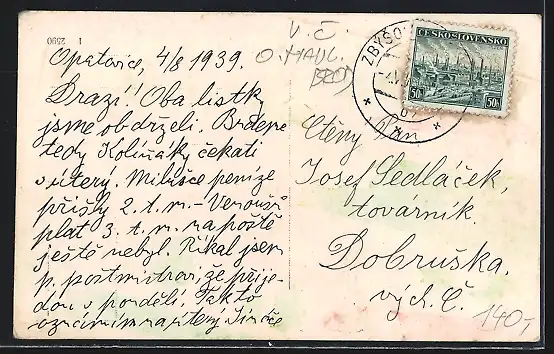 Opatovice, 4/8 1939.
Drazí! Oba lístky
jsme obdrželi. Budeme
tedy Kolíňáky čekati
v úterý. Milušce peníze
přišly 2. t. m. –
plat 3. t. m. na poště
ještě nebyl. Říkal jsem
p. postmistrovi, že přije-
dou v pondělí. Takto
oznámím na úterý. Jináče
V. Č.
O. HAUL.
ČESKOSLOVENSKO
50h 50h
Ctěný Pán
Josef Sedláček,
továrník.
Dobruška.
vých. Č.
140,-
2590 1